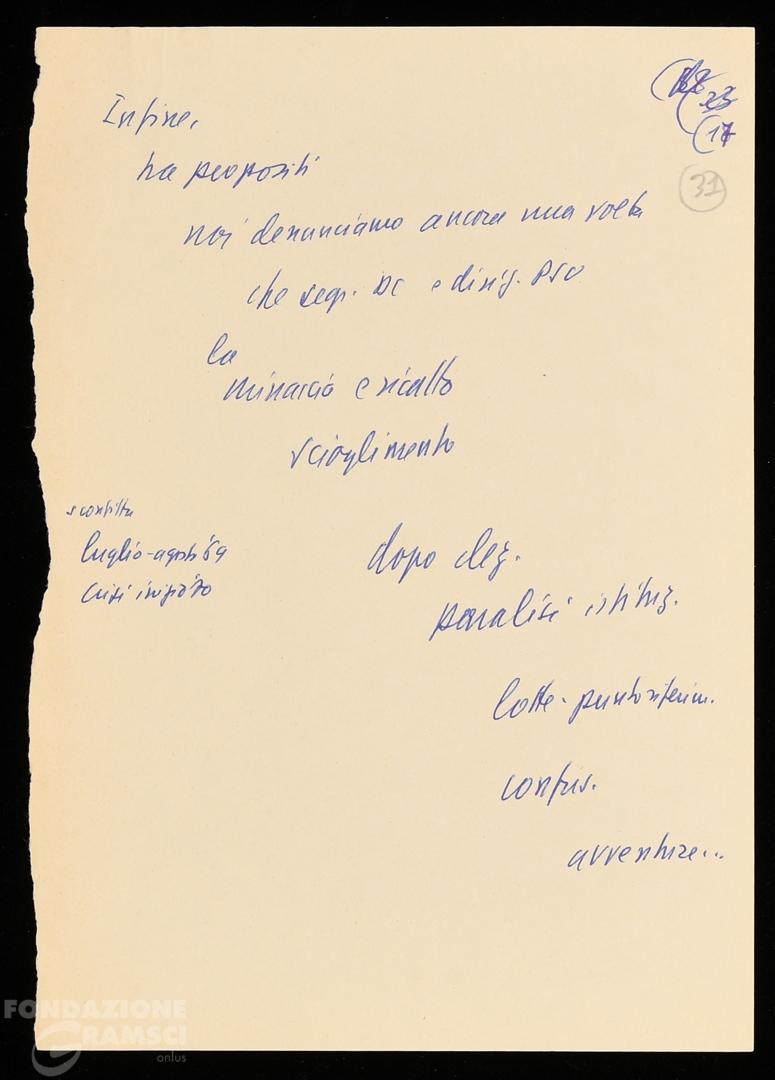 Infine,
33
(17
31
tra propositi
noi denunciamo ancora una volta
che segr. DC e dirig. PSU
la
minaccia e ricatto
scioglimento
sconfitta
luglio-agosto 69
crisi inizio 70
dopo elez.
paralisi istituz.
lotte - punto riferim.
confus.
avventure...
FONDAZIONE
GRAMSCI
onlus